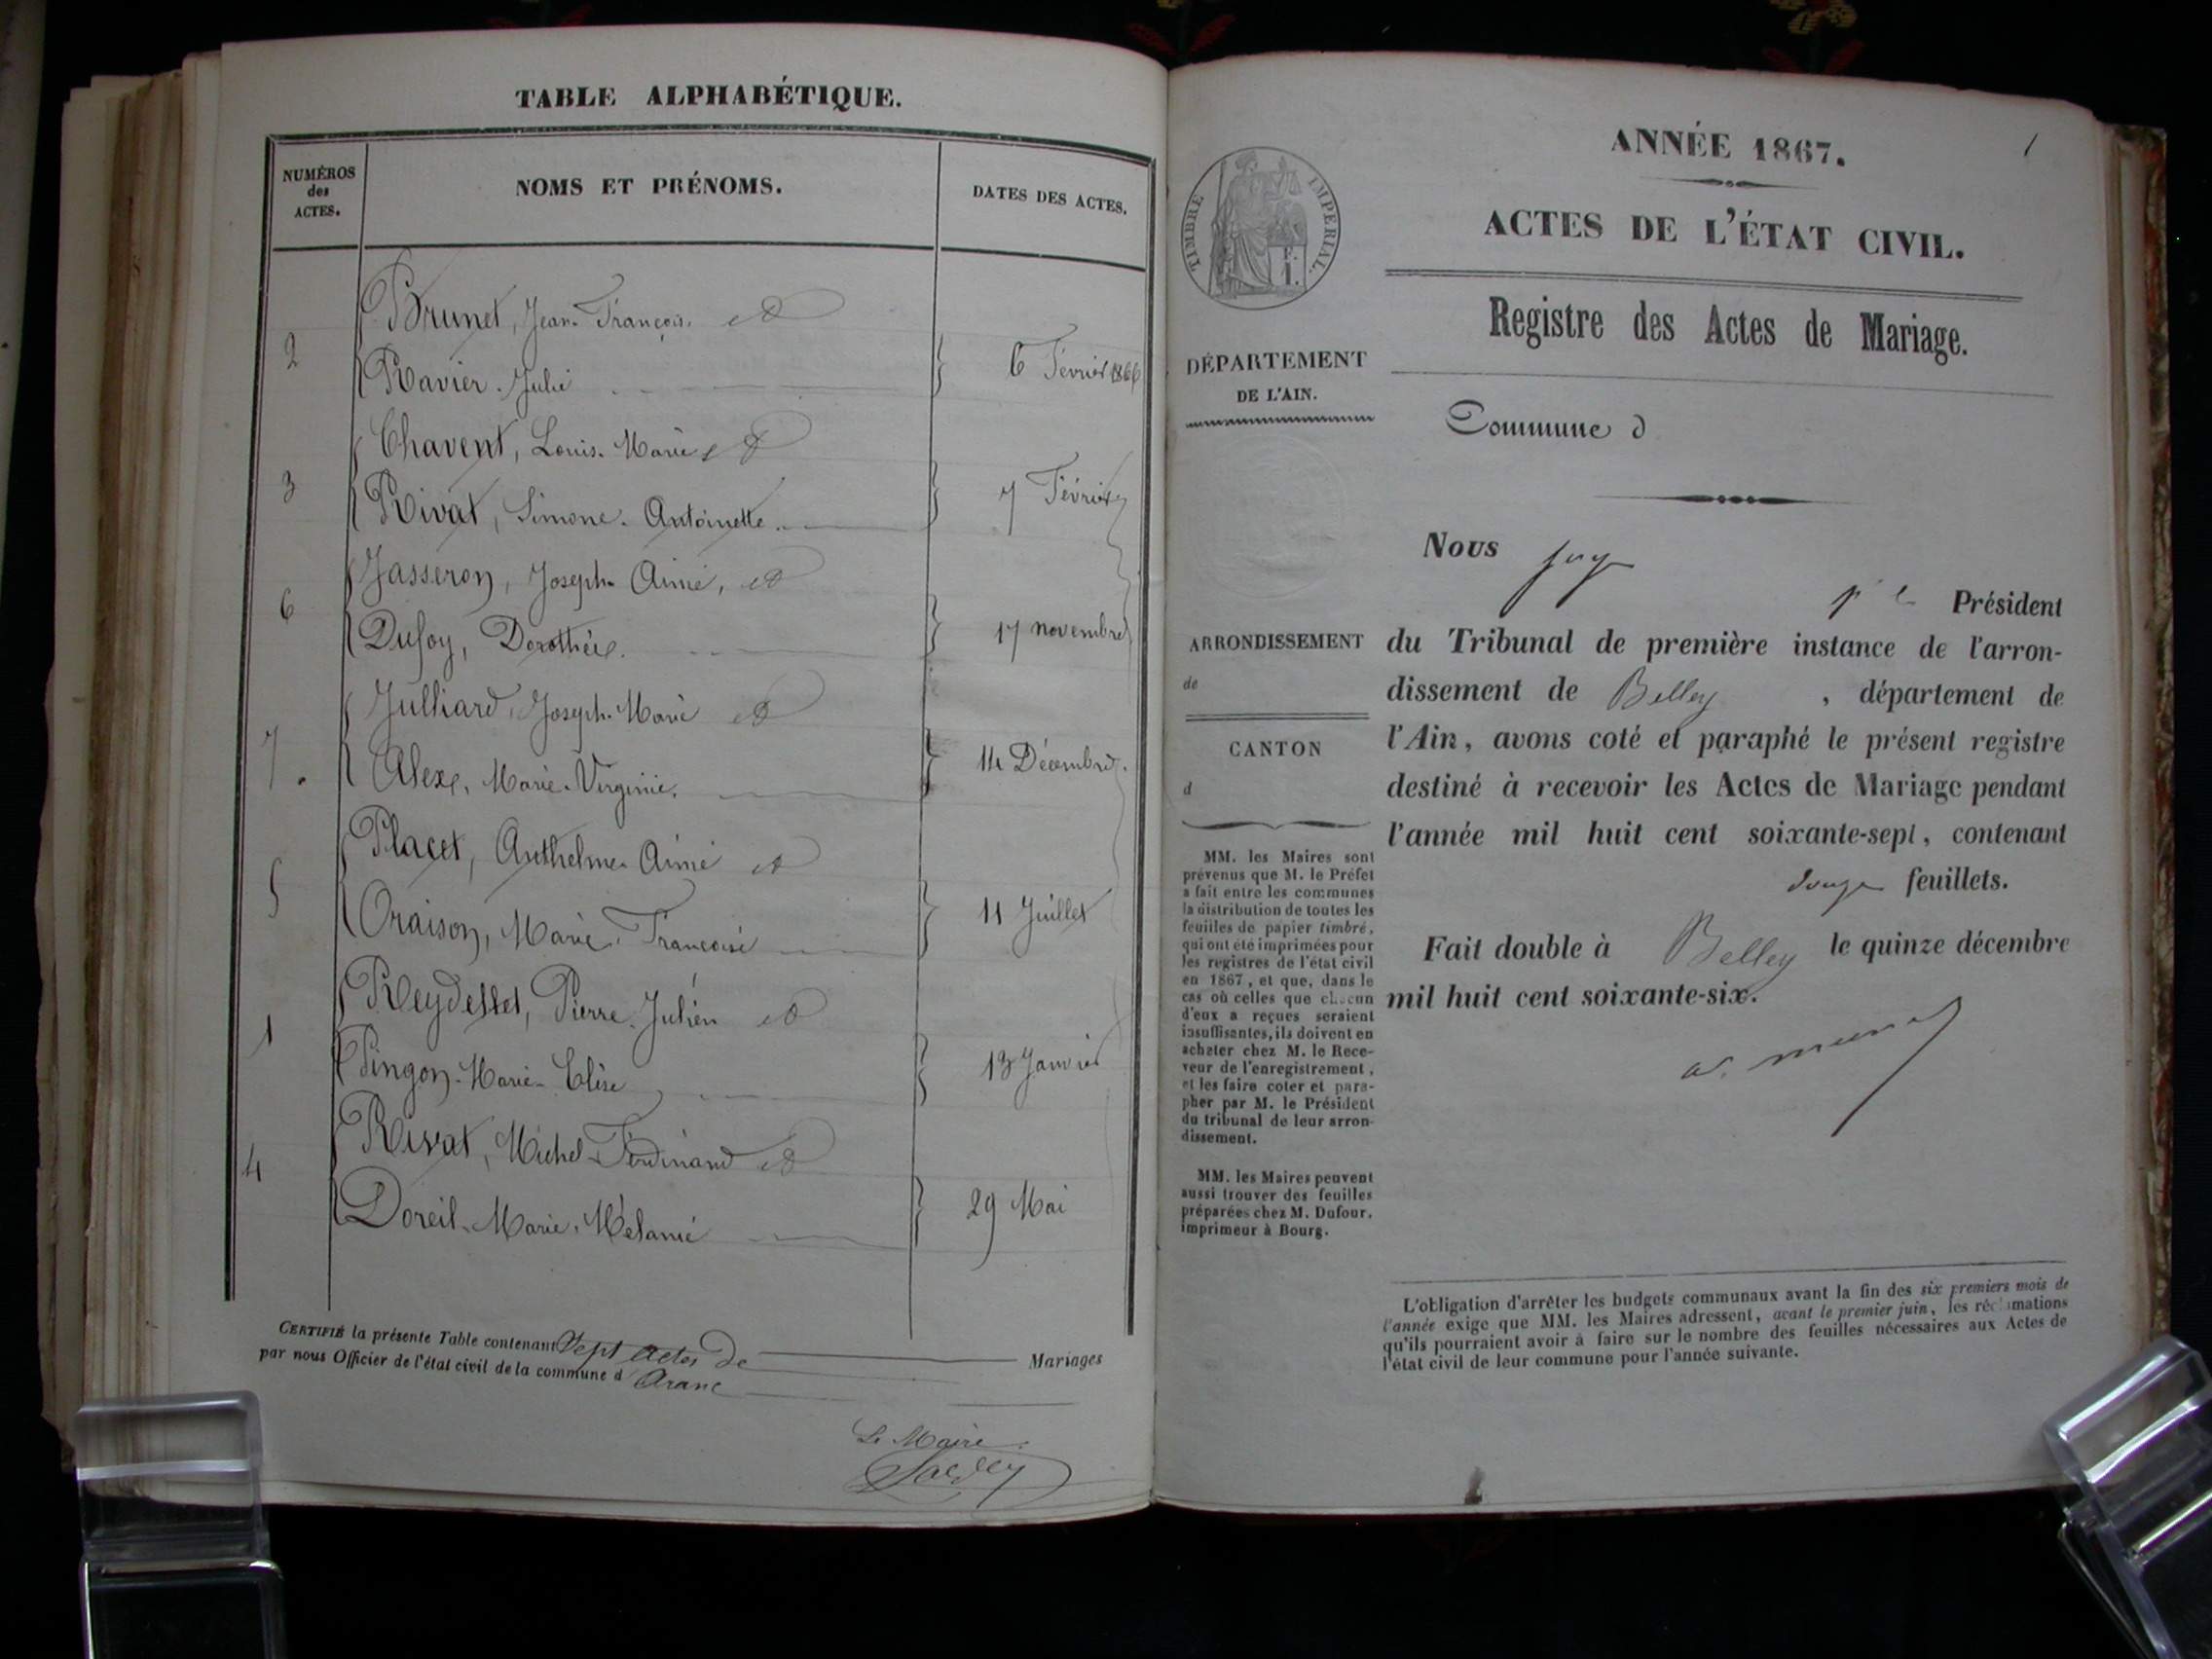 TABLE ALPHABÉTIQUE.
NUMÉROS des ACTES.
NOMS ET PRÉNOMS.
DATES DES ACTES.
Brunet, Jean-François. et
2
Ravier Julie
6 Février 1866
Chavent, Louis-Marie et
3
Rivat, Simone-Antoinette.
7 Février
Jasseron, Joseph-Aimé, et
6
Dufoy, Dorothée.
17 novembre
Julliard, Joseph-Marie et
7.
Alexe, Marie-Virginie.
14 Décembre.
Placet, Anthelme-Aimé et
5
Oraison, Marie-Françoise
11 Juillet
Reydellet, Pierre-Julien et
1
Pingon-Marie-Elise
13 Janvier
Rivat, Michel-Ferdinand et
4
Doreil-Marie-Mélanie
29 Mai
CERTIFIÉ la présente Table contenant Sept actes de Mariages
par nous Officier de l'état civil de la commune d Aranc
Le Maire.
1
ANNÉE 1867.
ACTES DE L'ÉTAT CIVIL.
Registre des Actes de Mariage.
TIMBRE IMPERIAL.
F.
1.
DÉPARTEMENT
DE L'AIN.
ARRONDISSEMENT
de
CANTON
d
MM. les Maires sont
prévenus que M. le Préfet
a fait entre les communes
la distribution de toutes les
feuilles de papier timbré,
qui ont été imprimées pour
les registres de l'état civil
en 1867, et que, dans le
cas où celles que chacun
d'eux a reçues seraient
insuffisantes, ils doivent en
acheter chez M. le Rece-
veur de l'enregistrement,
et les faire coter et para-
pher par M. le Président
du tribunal de leur arron-
dissement.
MM. les Maires peuvent
aussi trouver des feuilles
préparées chez M. Dufour,
imprimeur à Bourg.
Commune d
Nous juge Président
du Tribunal de première instance de l'arron-
dissement de Belley, département de
l'Ain, avons coté et paraphé le présent registre
destiné à recevoir les Actes de Mariage pendant
l'année mil huit cent soixante-sept, contenant
douze feuillets.
Fait double à Belley le quinze décembre
mil huit cent soixante-six.
L'obligation d'arrêter les budgets communaux avant la fin des six premiers mois de
l'année exige que MM. les Maires adressent, avant le premier juin, les réclamations
qu'ils pourraient avoir à faire sur le nombre des feuilles nécessaires aux Actes de
l'état civil de leur commune pour l'année suivante.